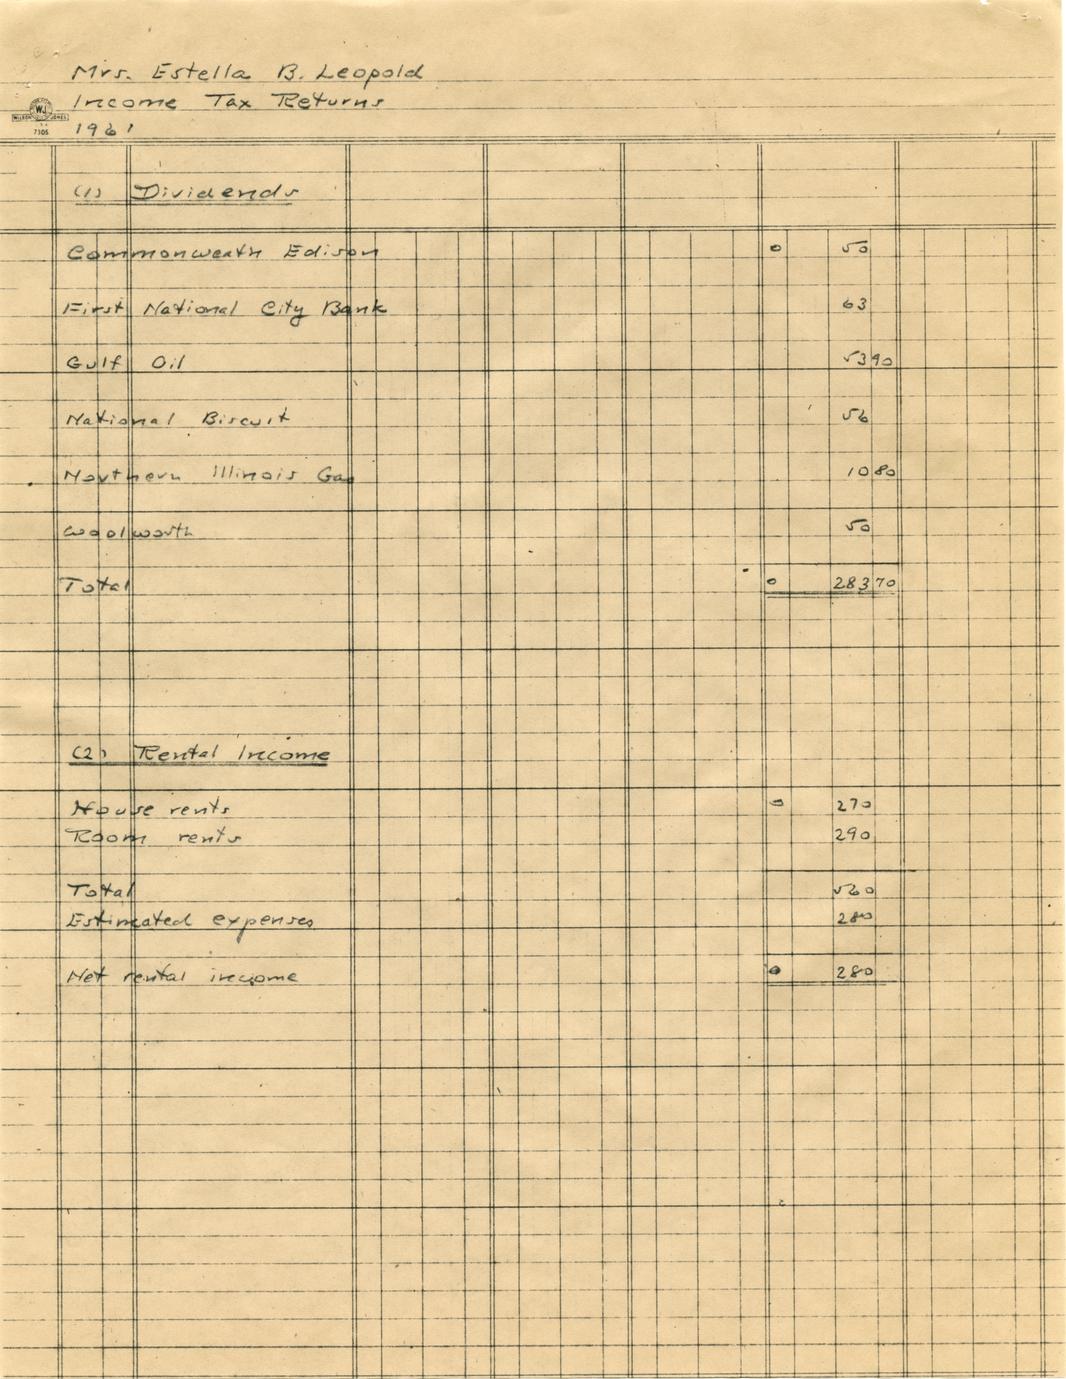 Mrs. Estella B. Leopold
Income Tax Returns
WJ
WILSON JONES
7305
1961
(1) Dividends
Commonweath Edison 0 50
First National City Bank 63
Gulf Oil 53 90
National Biscuit 56
Northern Illinois Gas 10 80
Woolworth 50
Total 0 283 70
(2) Rental Income
House rents 0 270
Room rents 290
Total 560
Estimated expenses 280
Net rental income 0 280